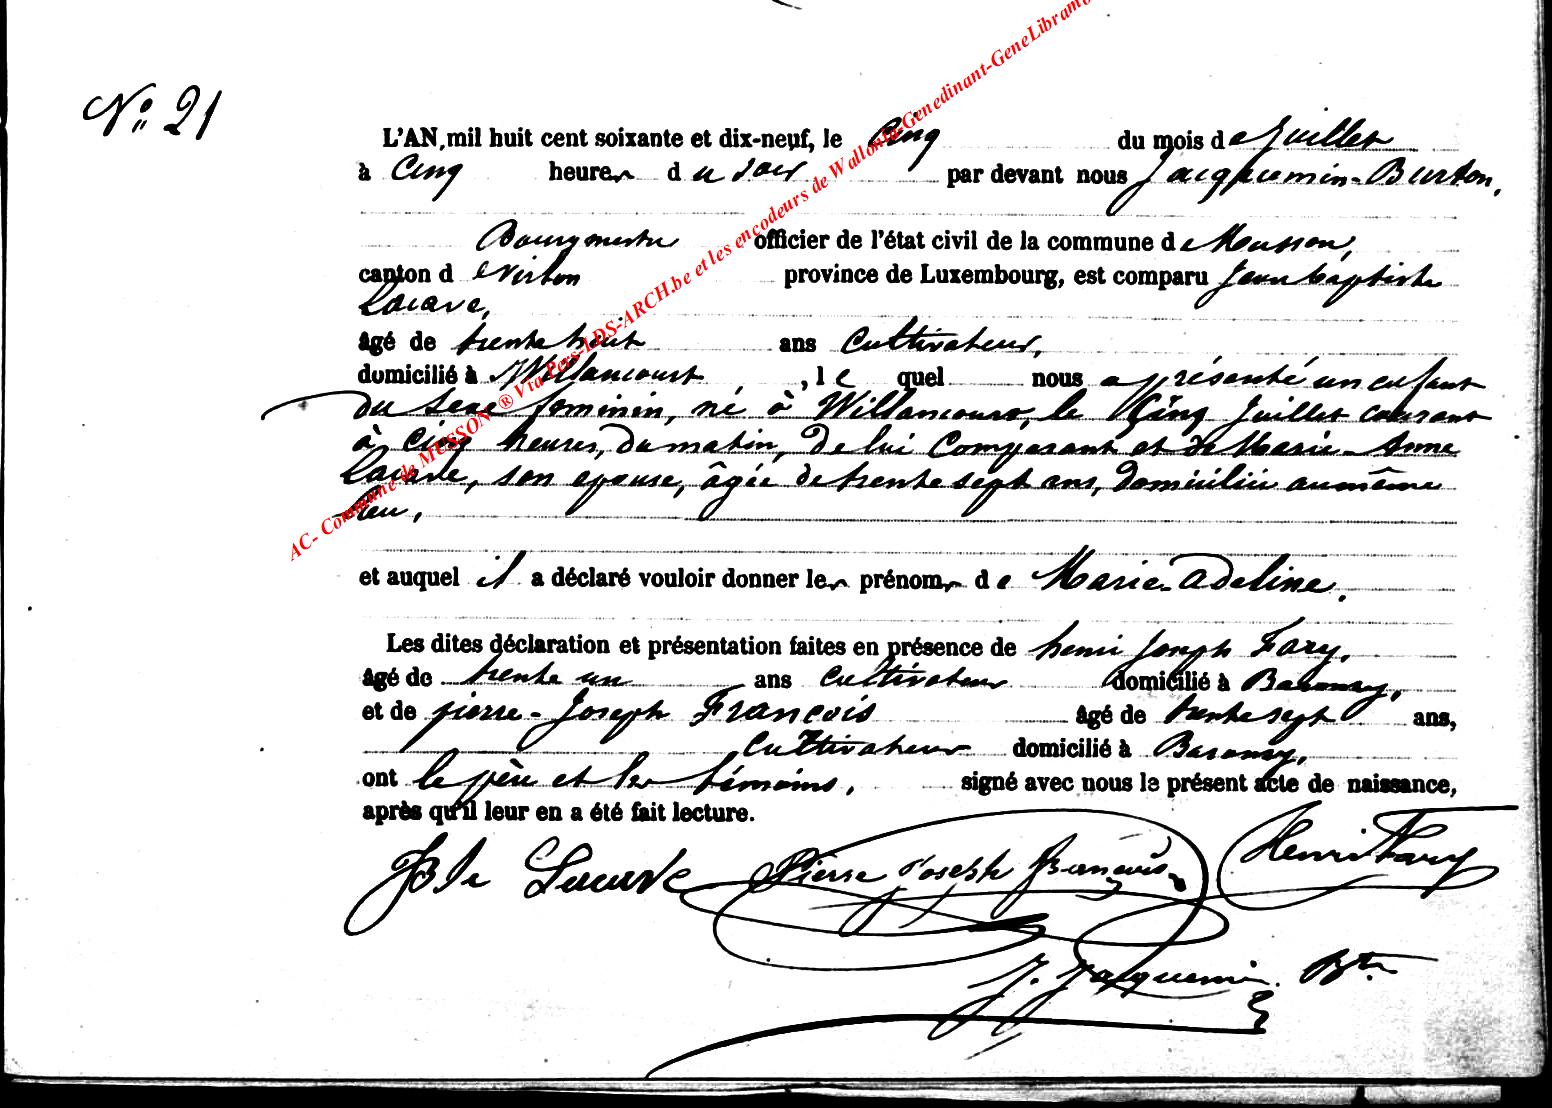 N° 21
L'AN mil huit cent soixante et dix-neuf, le Cinq du mois de Juillet
à Cinq heures du soir par devant nous Jacquemin-Burton,
Bourgmestre officier de l'état civil de la commune de Musson,
canton de Virton province de Luxembourg, est comparu Jean Baptiste
Lacave,
âgé de trente huit ans Cultivateur,
domicilié à Willancourt, le quel nous a présenté un enfant
du sexe feminin, né à Willancourt, le Cinq Juillet courant
à Cinq heures, du matin, de lui Comparant et de Marie-Anne
son epouse, âgée de trente sept ans, domiciliée au même
lieu,
et auquel il a déclaré vouloir donner les prénoms de Marie-Adeline.
Les dites déclaration et présentation faites en présence de henri Joseph Fary,
âgé de trente un ans Cultivateur domicilié à Baranzy,
et de pierre-Joseph François âgé de trente sept ans,
Cultivateur domicilié à Baranzy,
ont le père et les témoins, signé avec nous le présent acte de naissance,
après qu'il leur en a été fait lecture.
JBte Lacave Pierre Joseph François Henri Fary
J. Jacquemin. Btn
AC- Commune de MUSSON ® Via Pers-LDS-ARCH.be et les encodeurs de Wallonia-Genedinant-GeneLibramo